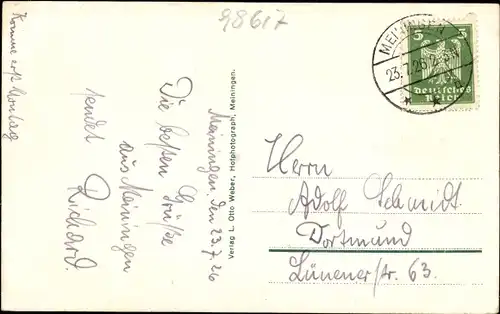 98617
Komme erst Montag
Meiningen, den 23.7.26
Die besten Grüße
aus Meiningen
sendet
Richard.
Verlag L. Otto Weber, Hofphotograph, Meiningen.
MEININGEN
23.7.26
5 5
Deutsches
Reich
Herrn
Adolf Schmidt
Dortmund
Lünenerstr. 63.